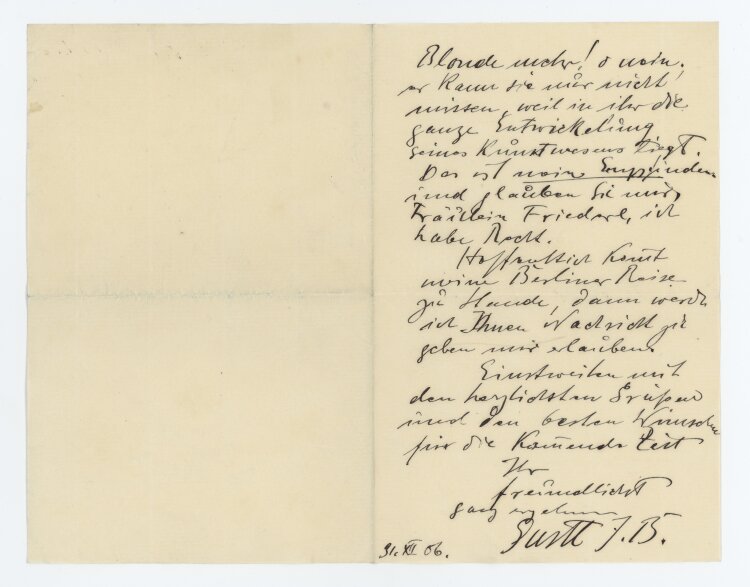 Blonde mehr! o nein,
er kann sie nur nicht
missen, weil in ihr die
ganze Entwickelung
seines Kunstwesens liegt.
Das ist mein Empfinden
und glauben Sie mir,
Fräulein Friederl, ich
habe Recht.
Hoffentlich kom̅t
meine Berliner Reise
zu Stande, dann werde
ich Ihnen Nachricht zu
geben mir erlauben.
Einstweilen mit
den herzlichsten Grüßen
und den besten Wünschen
für die kom̅ende Zeit
Ihr
freundlichst
ganz ergebener
J. B.
31. XI 06.